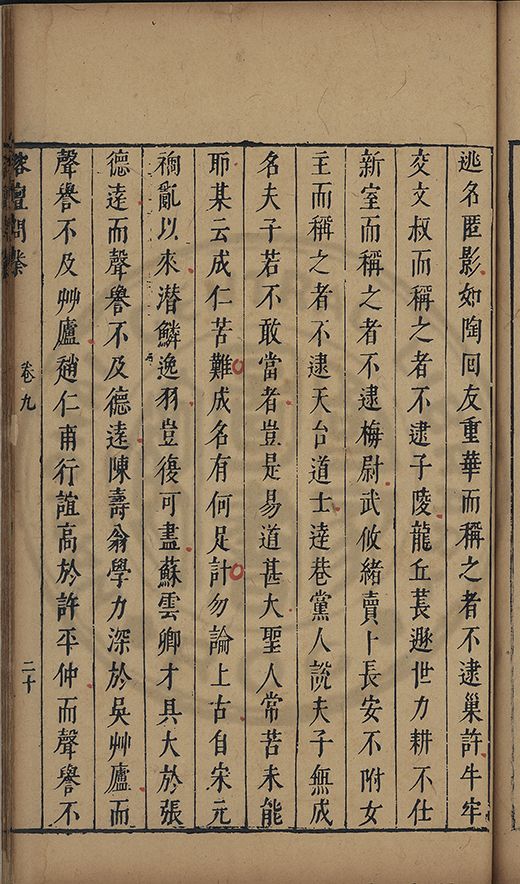 逃名匿影如陶囘友重華而稱之者不逮巢許牛牢
交文叔而稱之者不逮子陵龍丘萇遯世力耕不仕
新室而稱之者不逮梅尉武攸緒賣卜長安不附女
主而稱之者不逮天台道士達巷黨人說夫子無成
名夫子若不敢當者豈是易道甚大聖人常苦未能
耶某云成仁苦難成名有何足計勿論上古自宋元
禍亂以來潛鱗逸羽豈復可盡蘇雲卿才具大於張
德遠而聲譽不及德遠陳壽翁學力深於吳艸廬而
聲譽不及艸廬趙仁甫行誼高於許平仲而聲譽不
榕壇問業
卷九
二十